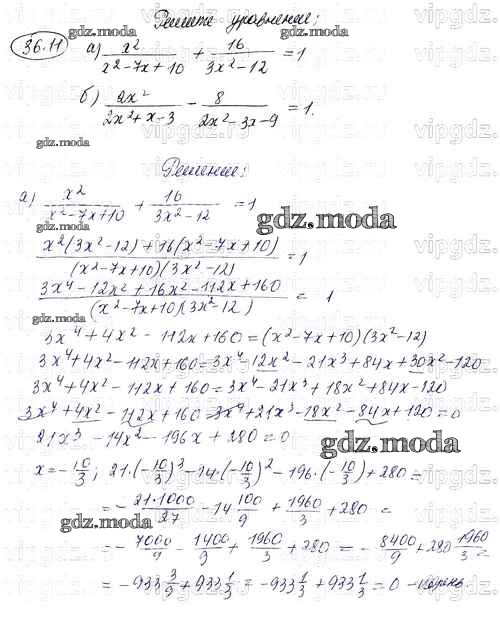 Решите уравнение:
36.11 а) x²/(x²-7x+10) + 16/(3x²-12) = 1
gdz.moda
б) 2x²/(2x²+x-3) - 8/(2x²-3x-9) = 1.
gdz.moda
Решение:
а) x²/(x²-7x+10) + 16/(3x²-12) = 1
gdz.moda
(x²(3x²-12)+16(x²-7x+10))/((x²-7x+10)(3x²-12)) = 1
(3x⁴-12x²+16x²-112x+160)/((x²-7x+10)(3x²-12)) = 1
gdz.moda
3x⁴+4x²-112x+160=(x²-7x+10)(3x²-12)
3x⁴+4x²-112x+160=3x⁴-12x²-21x³+84x+30x²-120
3x⁴+4x²-112x+160=3x⁴-21x³+18x²+84x-120
3x⁴+4x²-112x+160-3x⁴+21x³-18x²-84x+120=0
21x³-14x²-196x+280=0
gdz.moda
x=-10/3; 21·(-10/3)³-14·(-10/3)²-196·(-10/3)+280=
=-21·1000/27-14·100/9+1960/3+280=
gdz.moda
=-7000/9-1400/9+1960/3+280=-8400/9+280 1960/3
=-933 3/9+933 1/3=-933 1/3+933 1/3=0 -корень
gdz.moda